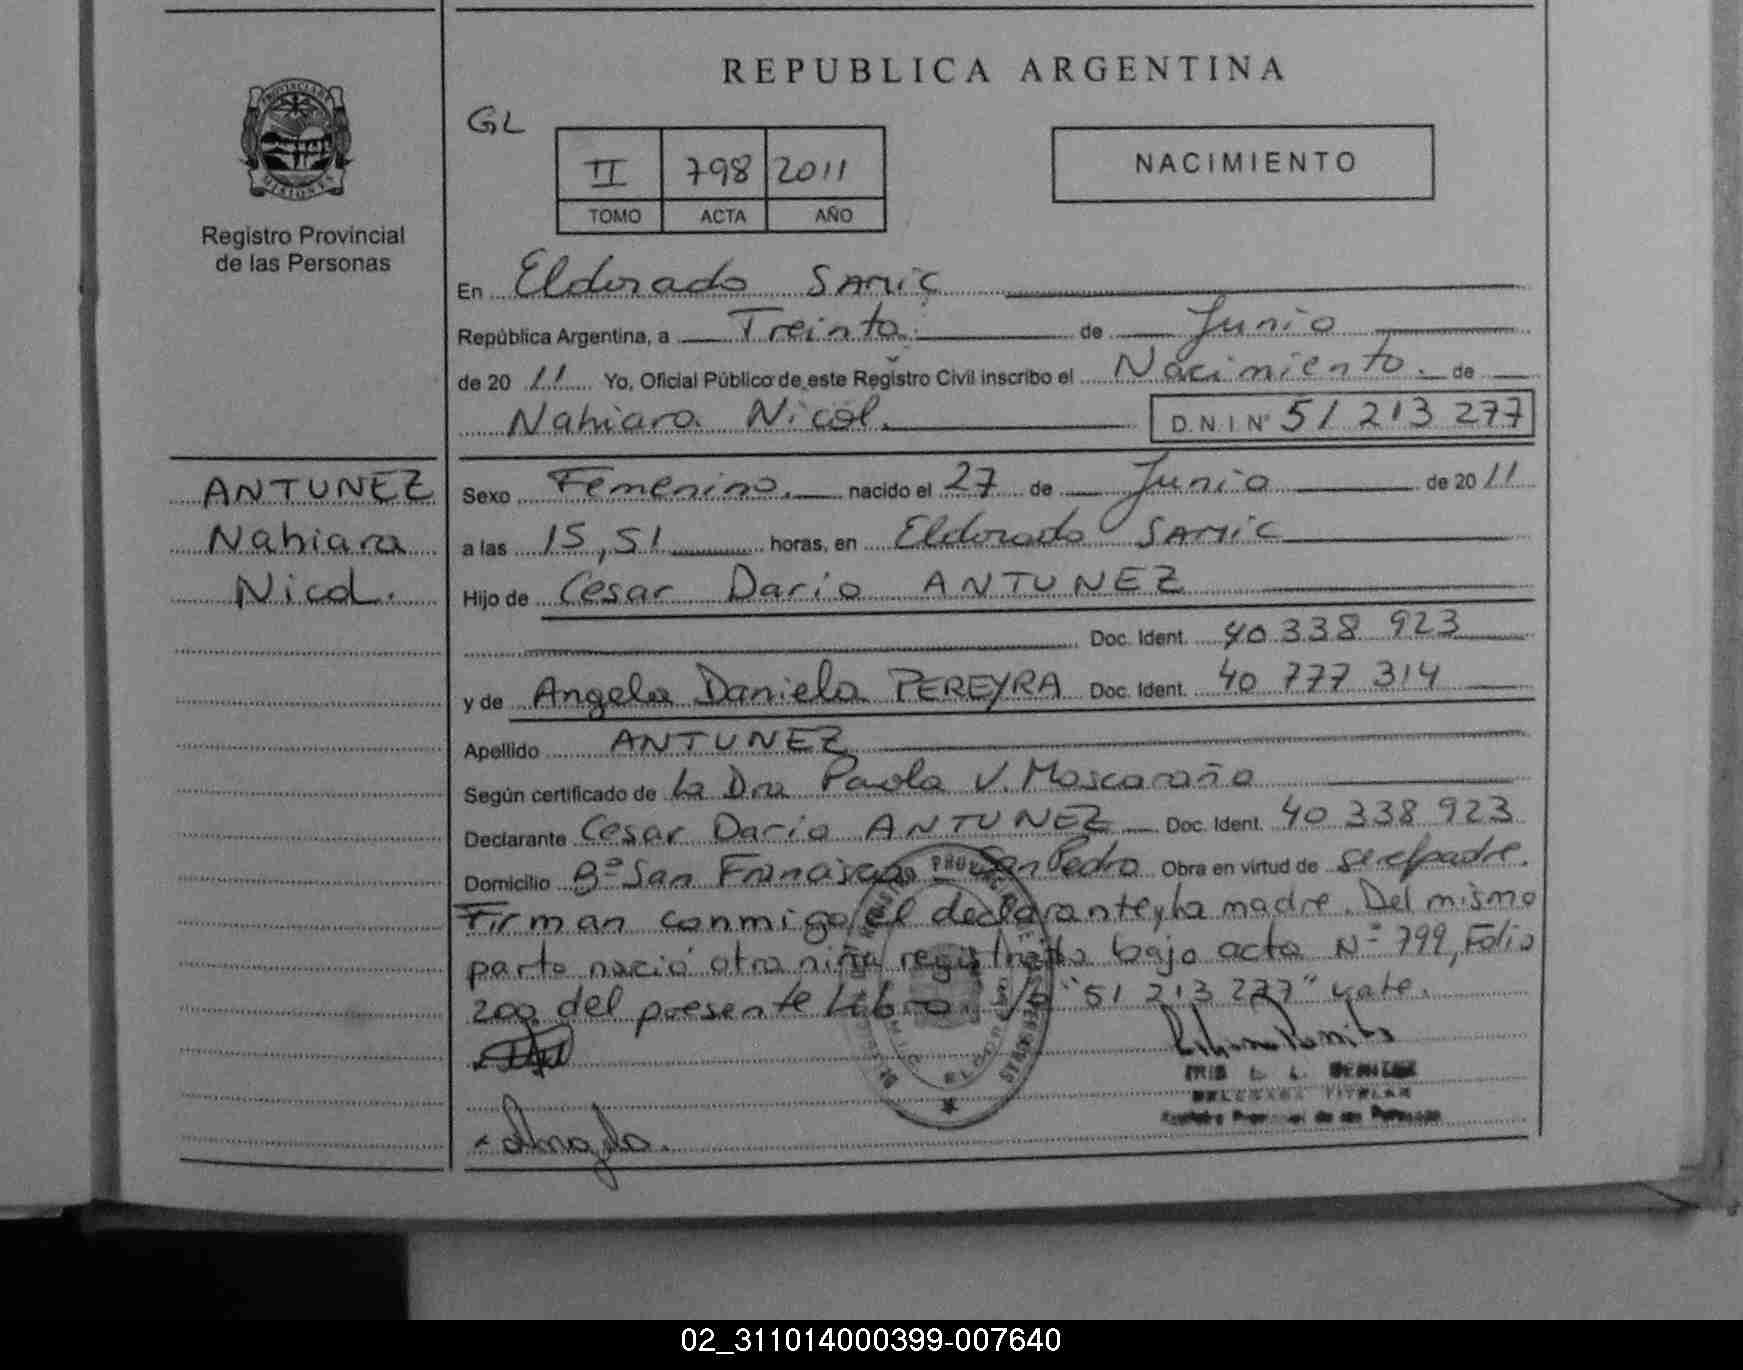 REPUBLICA ARGENTINA
GL
II 798 2011
TOMO ACTA AÑO
NACIMIENTO
Registro Provincial
de las Personas
En Eldorado SAMIC
República Argentina, a Treinta de Junio
de 2011 Yo, Oficial Público de este Registro Civil inscribo el Nacimiento. de
Nahiara Nicol. D.N.I Nº 51 213 277
ANTUNEZ
Nahiara
Nicol.
Sexo Femenino. nacido el 27 de Junio de 2011
a las 15,51 horas, en Eldorado SAMIC
Hijo de Cesar Dario ANTUNEZ
Doc. Ident. 40 338 923
y de Angela Daniela PEREYRA Doc. Ident. 40 777 314
Apellido ANTUNEZ
Según certificado de La Dra Paola V. Moscaraño
Declarante Cesar Dario ANTUNEZ Doc. Ident. 40 338 923
Domicilio Bº San Francisco San Pedro Obra en virtud de ser el padre.
Firman conmigo el declarante y la madre. Del mismo
parto nació otra niña registrada bajo acta Nº 799, Folio
200 del presente Libro. "51 213 277" vale.
Angela.
DELEGADA TITULAR
Registro Provincial de las Personas
02_311014000399-007640